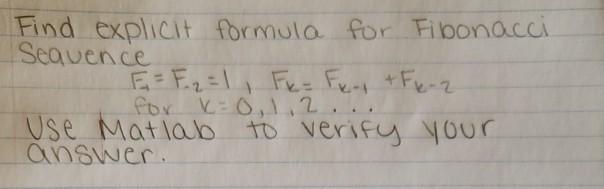 Find explicit formula for Fibonacci
Sequence
F₋₁ = F₋₂ = 1, Fₖ = Fₖ₋₁ + Fₖ₋₂
for k = 0, 1, 2 ...
Use Matlab to verify your
answer.